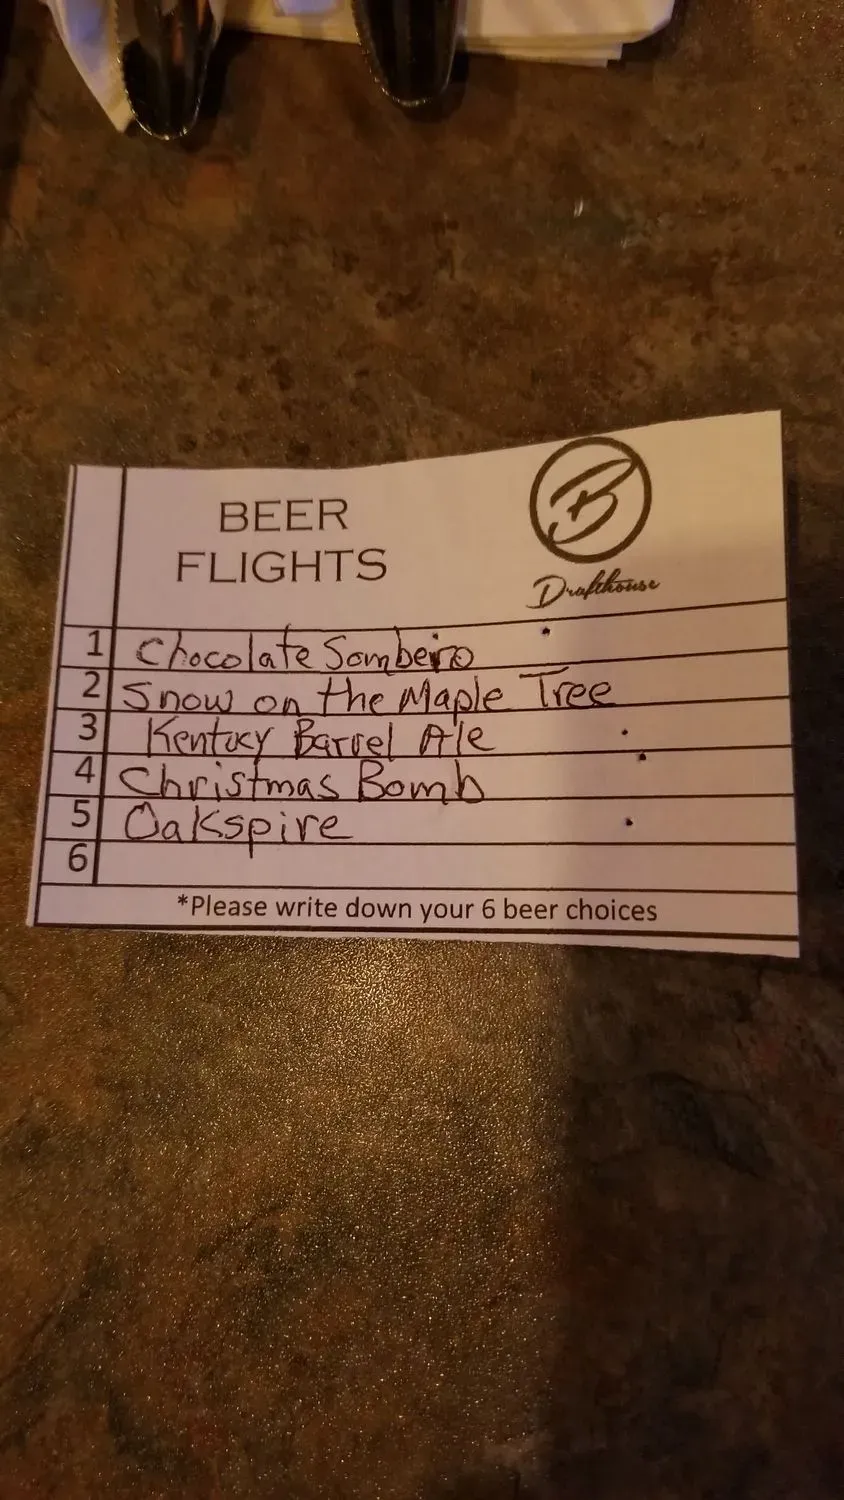 BEER
FLIGHTS
B
Drafthouse
1 Chocolate Sombeiro
2 Snow on the Maple Tree
3 Kentucy Barrel Ale
4 Christmas Bomb
5 Oakspire
6
*Please write down your 6 beer choices